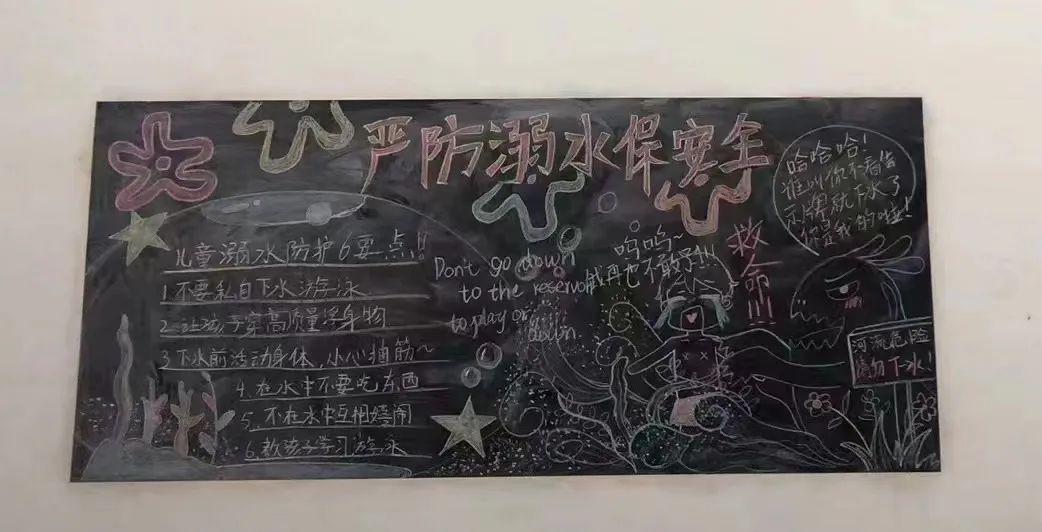 严防溺水保安全
儿童溺水防护6要点!!
1.不要私自下水游泳
2.让孩子穿高质量浮身物
3.下水前活动身体,小心抽筋~
4.在水中不要吃东西
5.不在水中互相嬉闹
6.教孩子学习游泳
Don't go down
to the reservoir
to play or
down
呜呜~
我再也不敢了!!!
救命!!!
哈哈哈!
谁叫你不看告
示牌就下水了
你是我的啦!
河流危险
请勿下水!